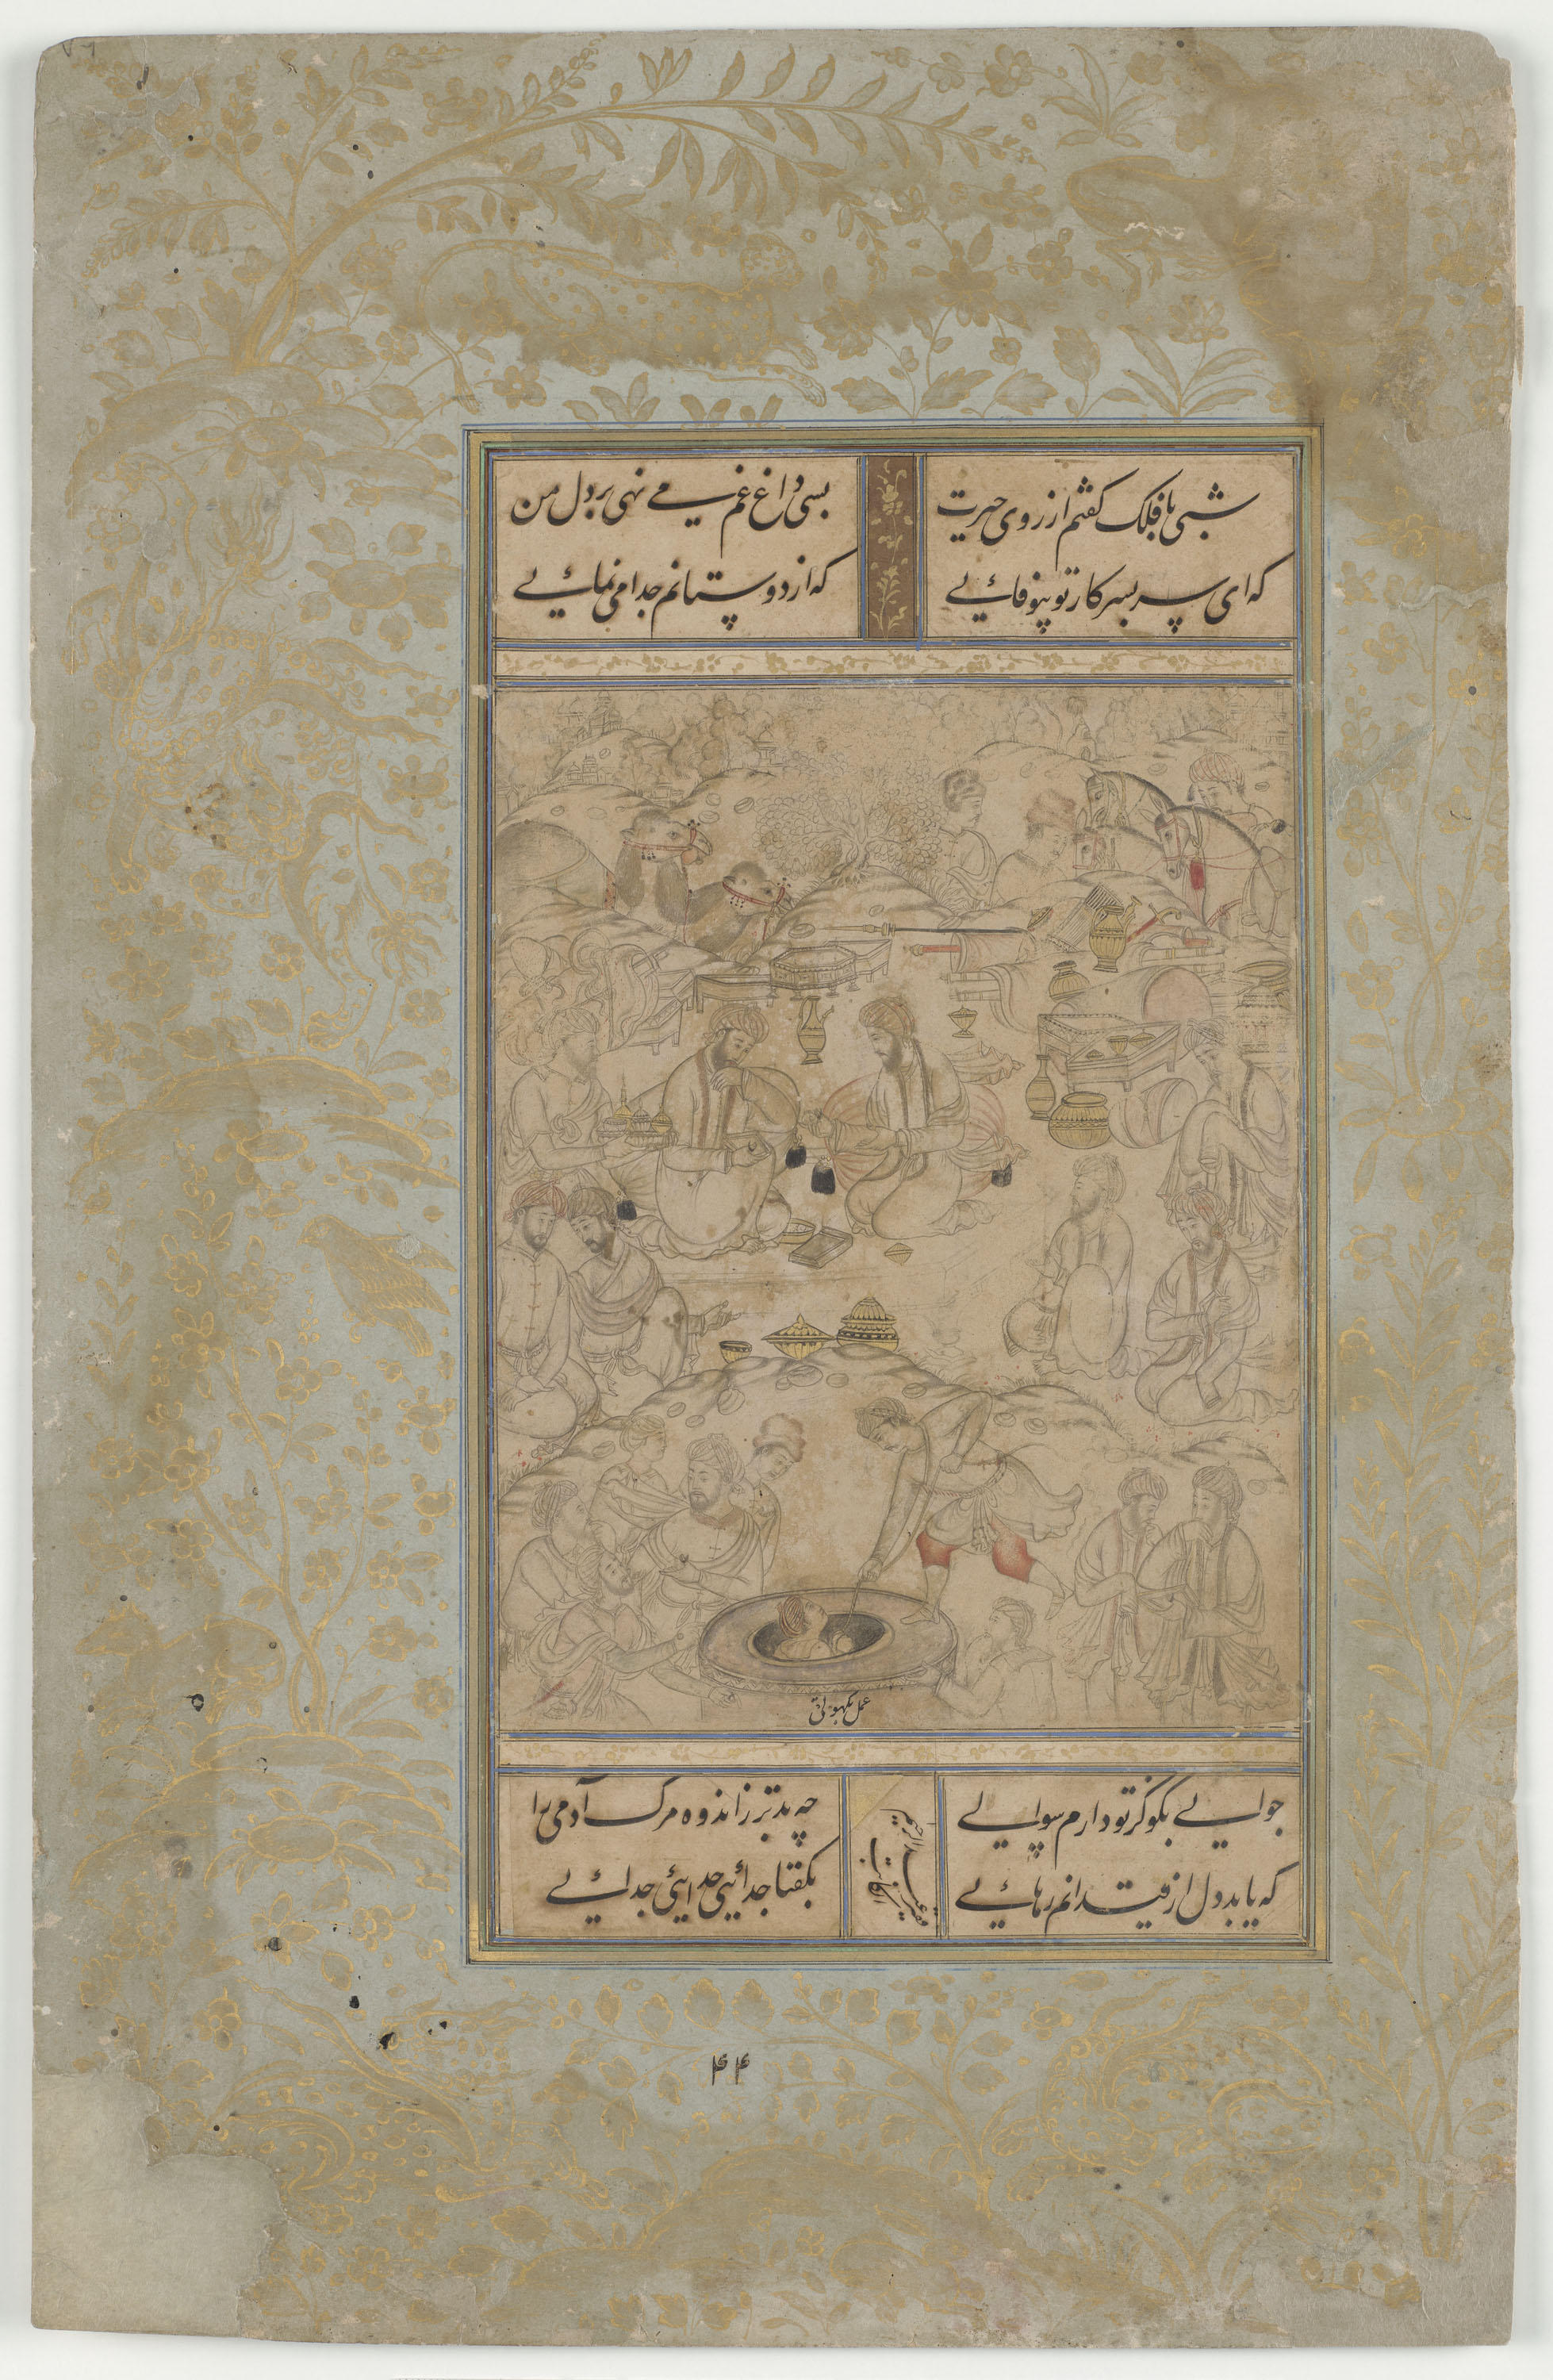 شبی با فلک گفتم از روی حیرت
بسی داغ غم می نهی بر دل من
که ای سر بسر کار تو بیوفائی
که از دوستانم جدا می نمائی
عمل بکهوتی
جوابی بگو کز تو دارم سوالی
چه بدتر ز اندوه مرگ آدمی را
که یابد دل از قید انم رهائی
بگفتا جدائی جدائی جدائی
فقیر عبد الرحیم
الکاتب
۴۴